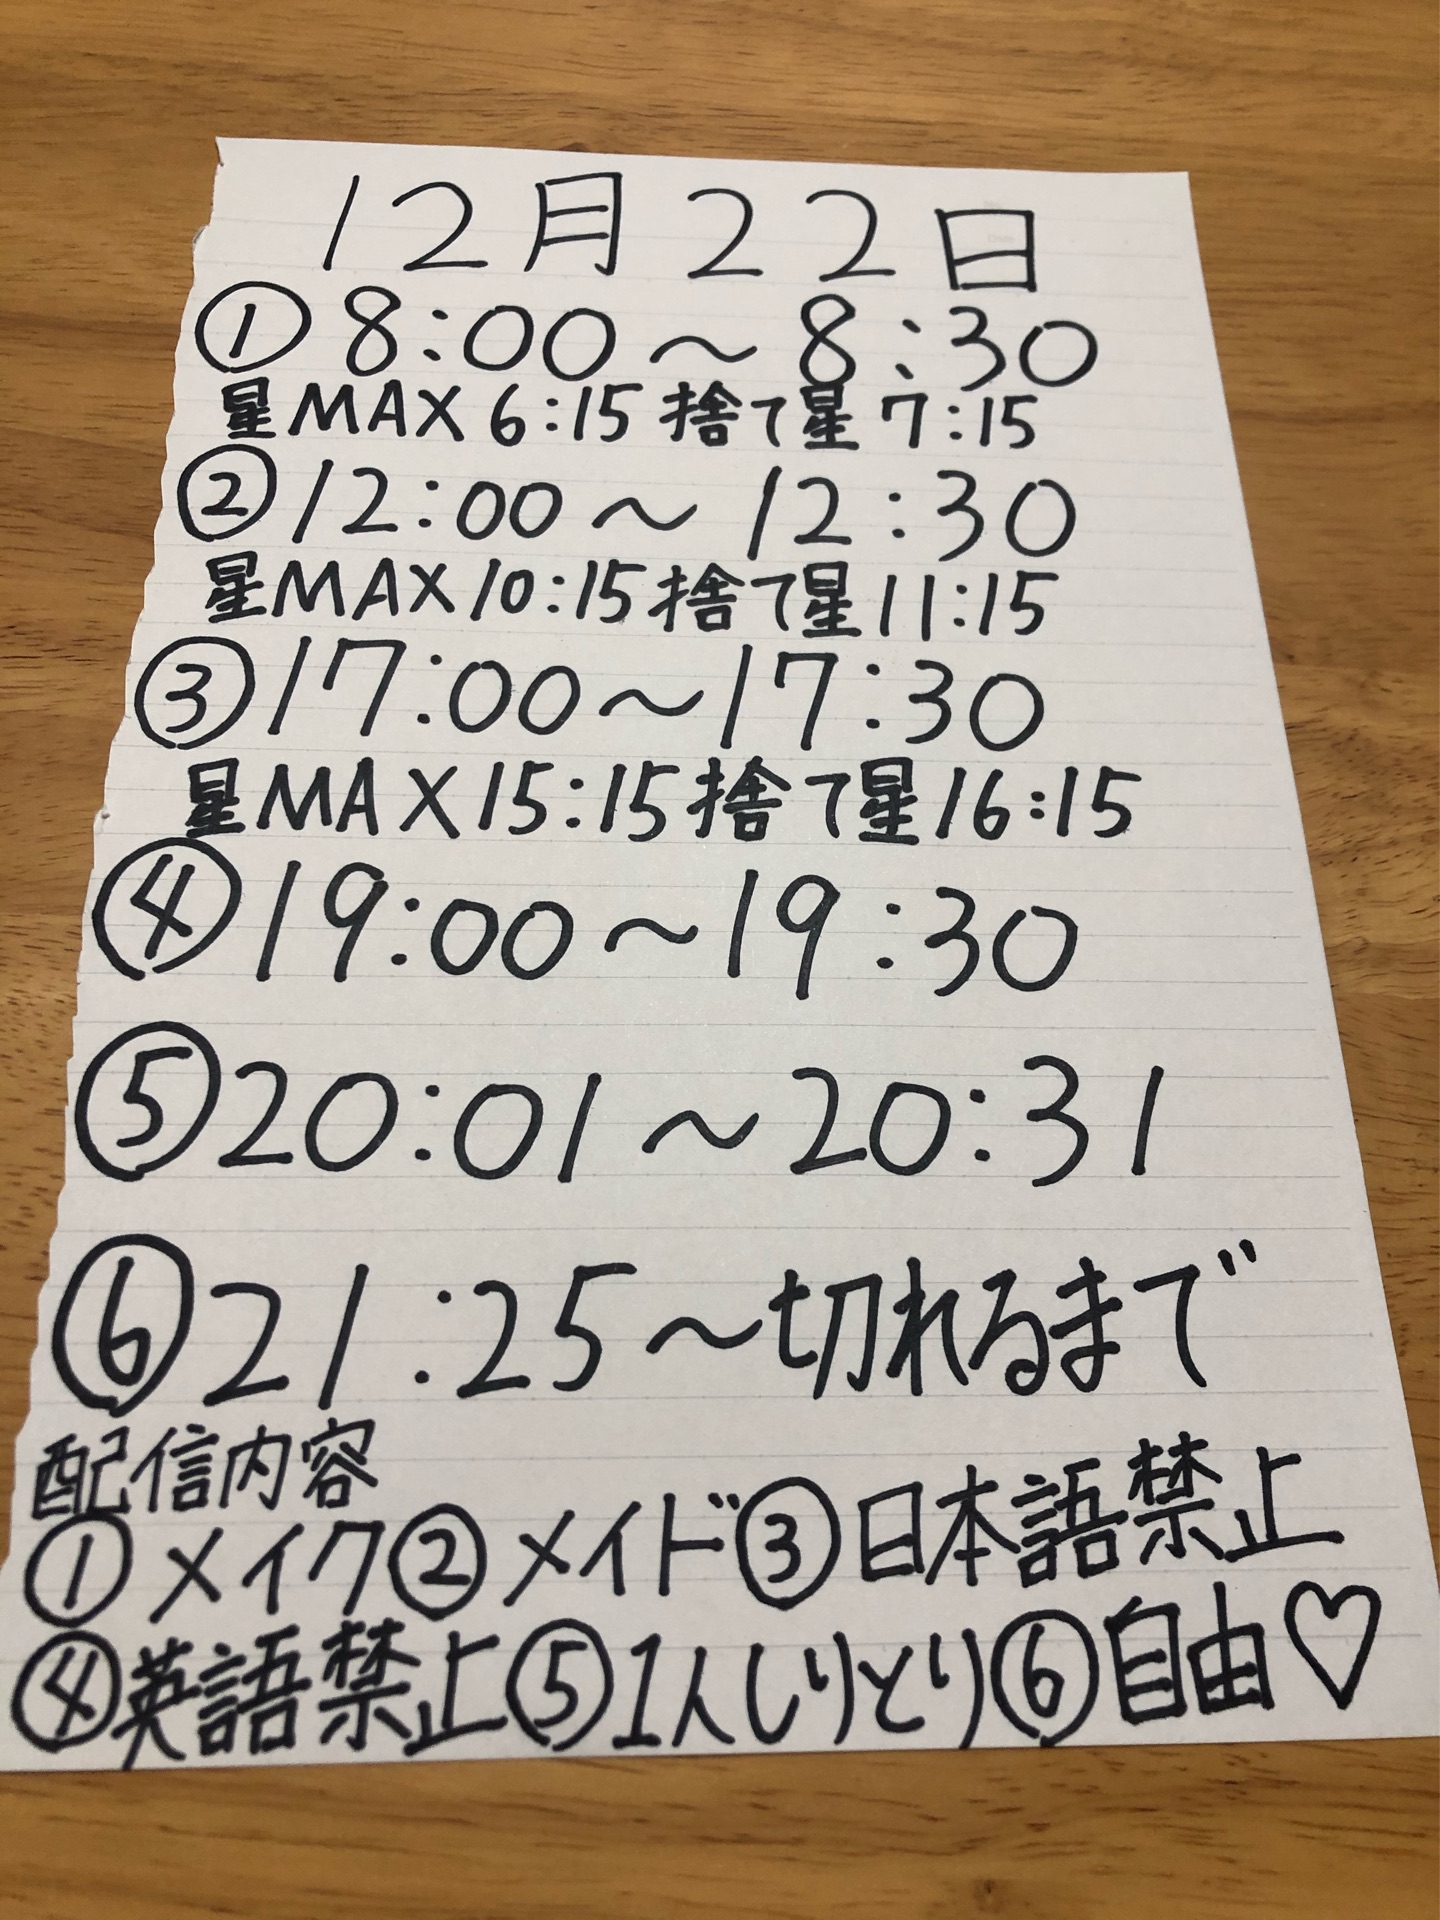 12月22日
①8:00～8:30
星MAX6:15捨て星7:15
②12:00～12:30
星MAX10:15捨て星11:15
③17:00～17:30
星MAX15:15捨て星16:15
④19:00～19:30
⑤20:01～20:31
⑥21:25～切れるまで
配信内容
①メイク②メイド③日本語禁止
④英語禁止⑤1人しりとり⑥自由♡